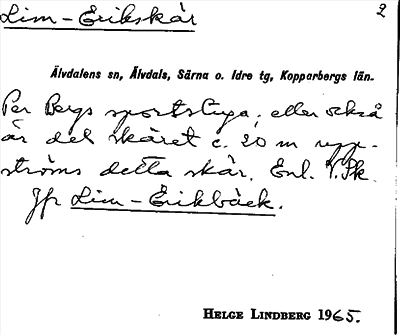 Lim-Erikskär 2
Älvdalens sn, Älvdals, Särna o. Idre tg, Kopparbergs län.
Per Bergs sportstuga; eller också
är det skäret c. 20 m upp-
ströms detta skär. Enl.
Jfr Lim-Erikbäck.
HELGE LINDBERG 1965.